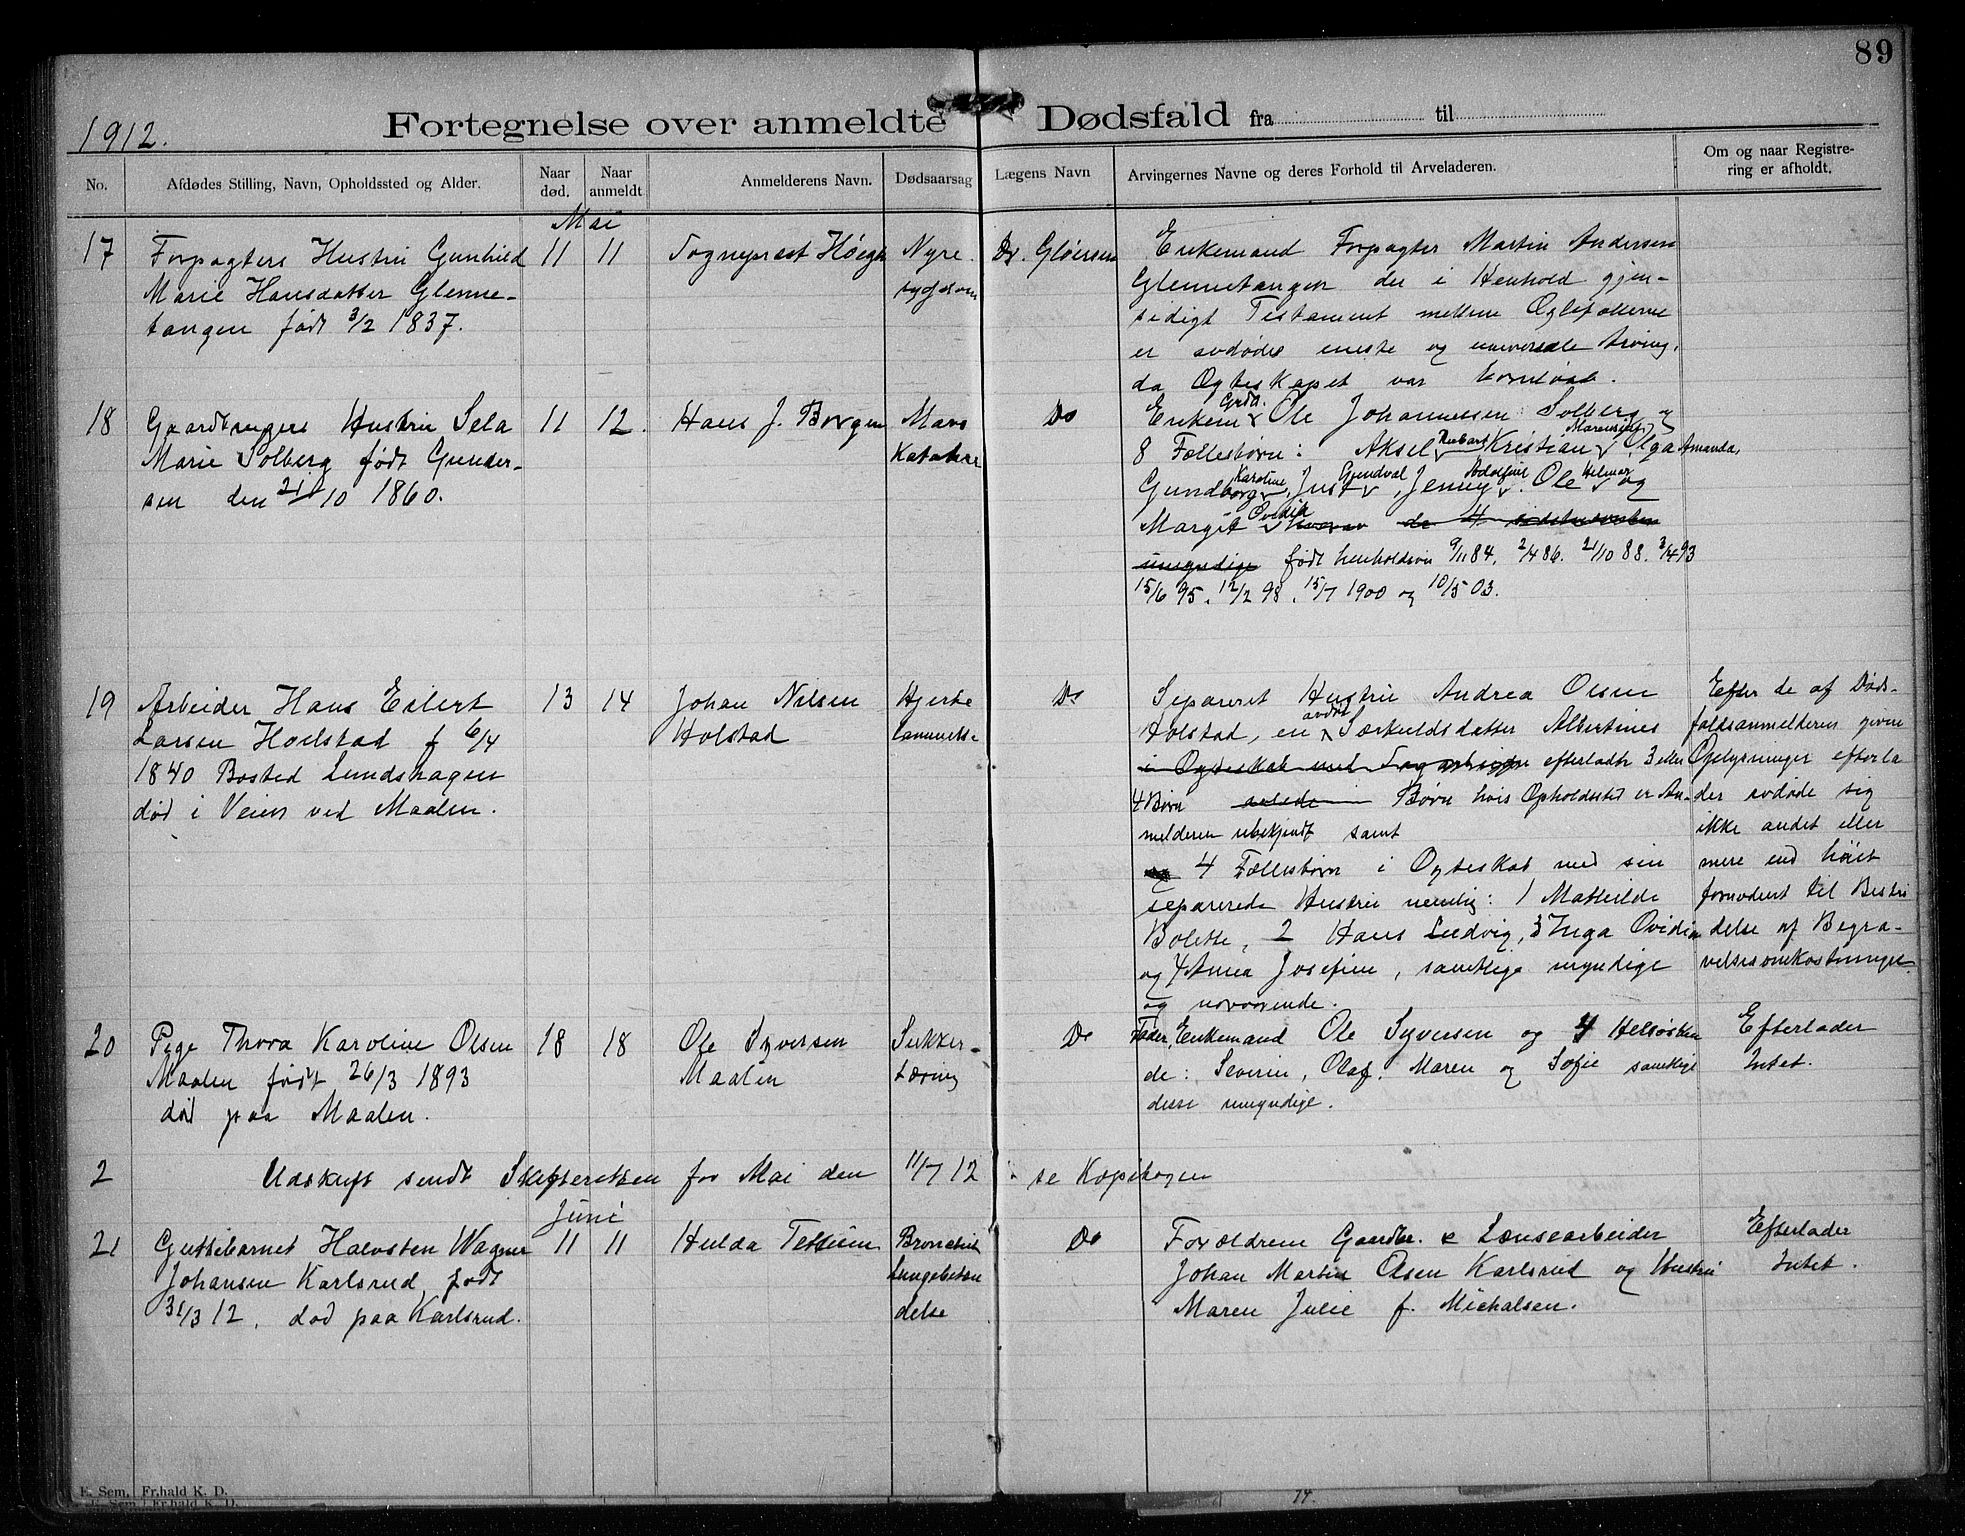 89
1912.
Fortegnelse over anmeldte Dødsfald fra til
No.
Afdødes Stilling, Navn, Opholdssted og Alder.
Naar død.
Naar anmeldt
Anmelderens Navn.
Dødsaarsag
Lægens Navn
Arvingernes Navne og deres Forhold til Arveladeren.
Om og naar Registre-
ring er afholdt.
Mai
17
Forpagters Hustru Gunhild
Marie Hansdatter Glenne-
tangen født 3/2 1837.
11
11
Sogneprest Høegh
Nyre
sygdom
Dr. Gløersen
Enkemand Forpagter Martin Andersen
Glennetangen der i Henhold gjen-
sidigt Testament mellem Ægtefolkene
er avdødes eneste og universale Arving,
da Ægteskapet var barnløst.
18
Gaardbrugers Hustru Sela
Marie Solberg født Gunder-
sen den 21/10 1860.
11
12.
Hans J. Borgen
Mave
Katahr
Do
Enkem Grdb. Ole Johannessen Solberg og
8 Fællesbørn: Aksel Kristian, Olga Amanda,
Gundborg Karoline, Just Gundval, Jenny Adolfine. Ole Hilmar og
Margit Ovidia hvorav de 4
umyndige født henholdsvis 9/11 84. 2/4 86. 21/10 88. 3/4 93
15/6 95. 12/2 98. 15/7 1900 og 10/5 03.
19
Arbeider Hans Eilert
Larsen Holstad f 6/4
1840 Bosted Lundshagen
død i Veien ved Maalen.
13
14
Johan Nilsen
Holstad
Hjerte
Lammelse
Do
Separeret Hustru Andrea Olsen
Holstad, en avdød Særkuldsdatter Albertines
i Ægteskab med efterladte 3 eller
4 Børn Børn hvis Opholdssted er An-
melderen ubekjendt samt
og 4 Fællesbørn i Ægteskab med sin
separerede Hustru nemlig: 1 Mathilde
Bolette, 2 Hans Ludvig, 3 Inga Ovidia
og 4 Anna Josefine, samtlige myndige
og nærværende.
Efter de af Døds-
faldsanmelderen givne
Oplysninger efterla
der avdøde sig
ikke andet eller
mere end høist
fornødent til Bestri
delse af Begra-
velsesomkostninger.
20
Pige Thora Karoline Olsen
Maalen født 26/3 1893
død paa Maalen.
18
18
Ole Syversen
Maalen
Sukker-
Do
Fader, Enkemand Ole Syversen og 4 Helsøsken
de: Severin, Olaf, Maren og Sofie samtlige
disse umyndige.
Efterlader
Intet.
2
Udskrift sendt Skifteretten for Mai den 11/7 12 se Kopibogen
Juni
21
Guttebarnet Halvsten Wagner
Johansen Karlsrud, født
31/3 12, død paa Karlsrud.
11
11
Hulda
Bronchit
Lungebetæn
delse
Do
Forældrene Gaardbr. & Lænsearbeider
Johan Martin Olsen Karlsrud og Hustru
Maren Julie f. Michalsen.
Efterlader
Intet.
E. Sem, Fr.hald K. D.
E. Sem, Fr.hald K. D.